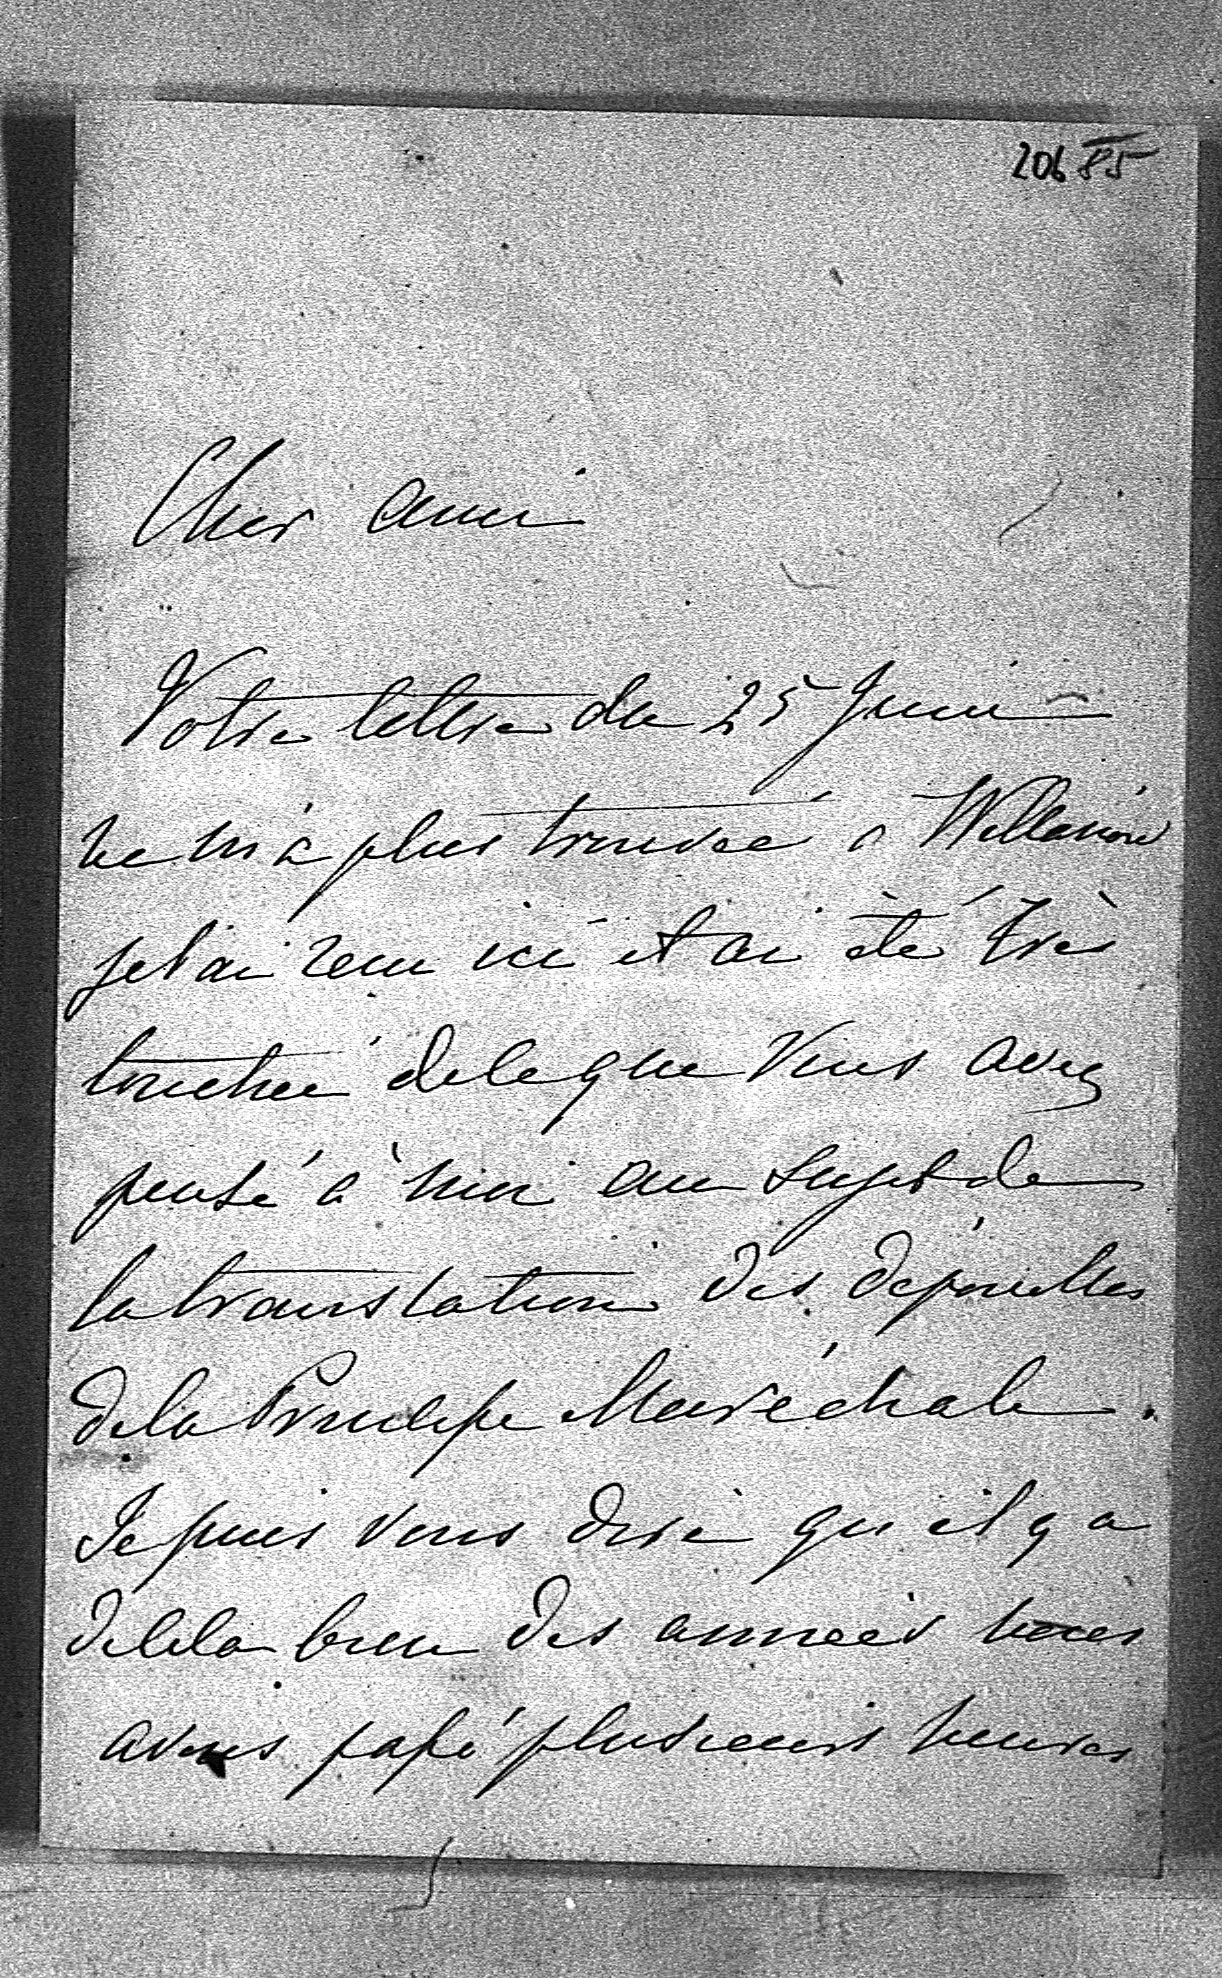 206 85
Cher ami
Votre lettre du 25 Juin
ne m'a plus trouvée à Willanów
je l'ai reçu ici et ai été très
touchée de ce que vous avez
pensé à moi au sujet de
la translation des dépouilles
de la Princesse Maréchale.
Je puis vous dire qu'il y a
de cela bien des années nous
avons passé plusieurs heures